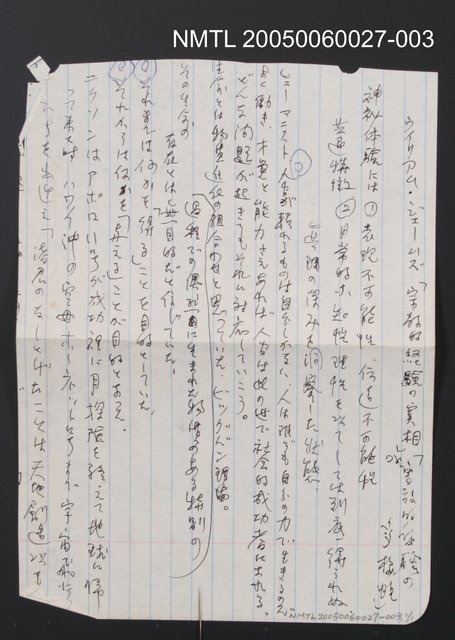 NMTL 20050060027-003
ウイリアム・ジェームズ「宗教的経験の実相」
神秘体験には①表現不可能性、伝達不可能性
普遍特徴 ②日常的な知性、理性を以てしては到底得られぬ
真理の深みを洞察した状態
ヒューマニスト 人間が頼れるものは自分しかない、人は誰でも自分の力で生きるのだ
よく働き、才覚と能力さえあれば人間は此の世で社会的成功者になれる。
どんな問題が起きてもそれに対応していこう。
生命とは物質 の組合わせと思っていた、ビッグバン理論。
その生命の 過程での偶然 に生まれた物質のある特別の
存在とは無目的だと信じていた。
それまでは何かを「得る」ことを目的としていた、
それからは何かを「与える」ことが目的となる。
ニクソンはアポロ11号が成功裡に月探険を終えて地球に帰
って来た時 ハワイ沖の空母ホーネット号まで宇宙飛行
士たちを出迎え「諸君のなしとげたことは天地創造以来
NMTL20050060027-003.1/1